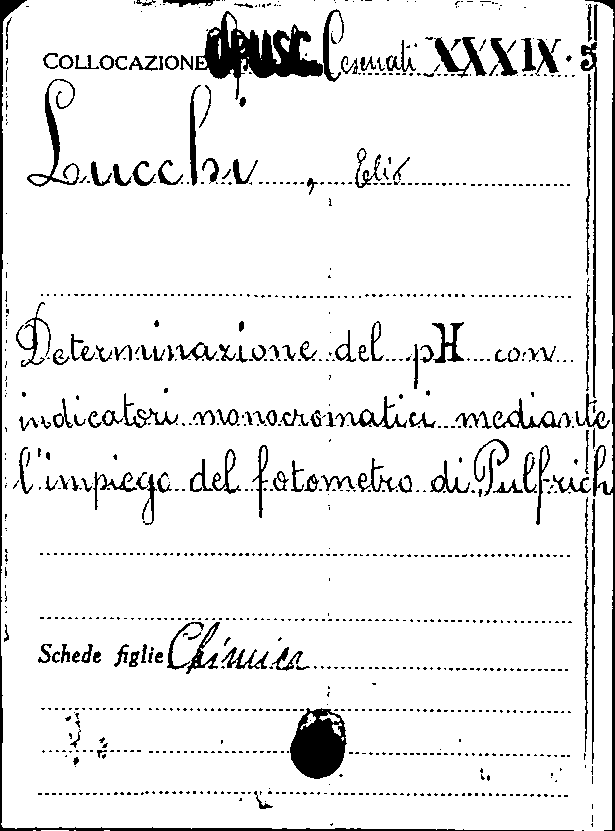 COLLOCAZIONE Opusc. Cesenati XXXIX. 5
Lucchi, Elio
Determinazione del pH con
indicatori monocromatici mediante
l'impiego del fotometro di Pulfrich
Schede figlie Chimica